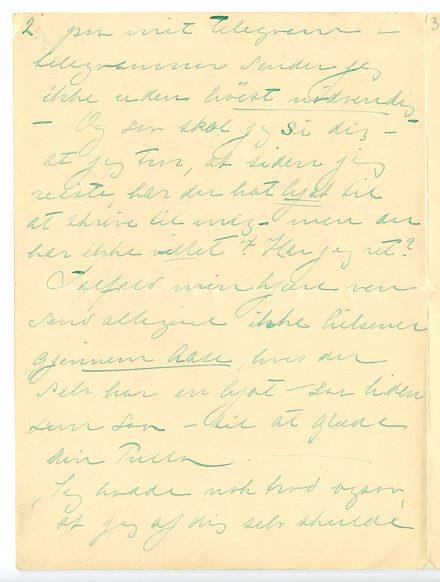 2. paa mit telegram –
telegrammer sender jeg
ikke uden höist nödvendig
– Og saa skal jeg si dig –
at jeg tror, at siden jeg
reiste, har du hat lyst til
at skrive til mig – men du
har ikke villet? Har jeg ret?
I al fald min kjære ven
send allerede ikke hilsener
gjennem Aase, hvis du
selv har en lyst – saa liden
som saa – til at glæde
din Tulla.
Jeg hadde nok trod ogsaa,
at jeg af dig selv skulde
3